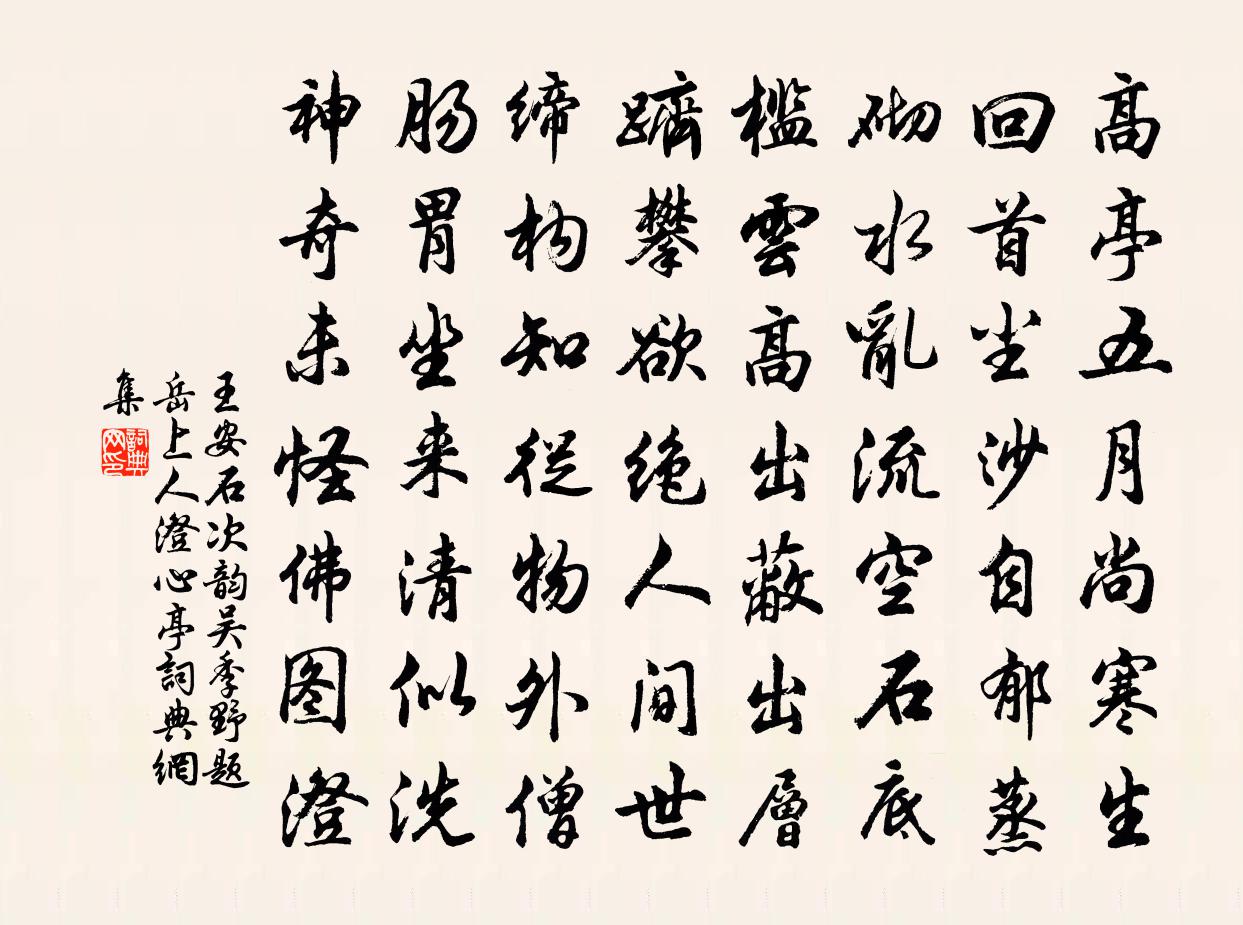 高亭五月尚寒生
回首尘沙自郁蒸
砌水亂流空石底
檻雲高出蔽出層
躋攀欲绝人间世
締构知從物外僧
肠胃坐来清似洗
神奇未怪佛图澄
王安石次韵吴季野题
岳上人澄心亭詞典網
集
詞典网印